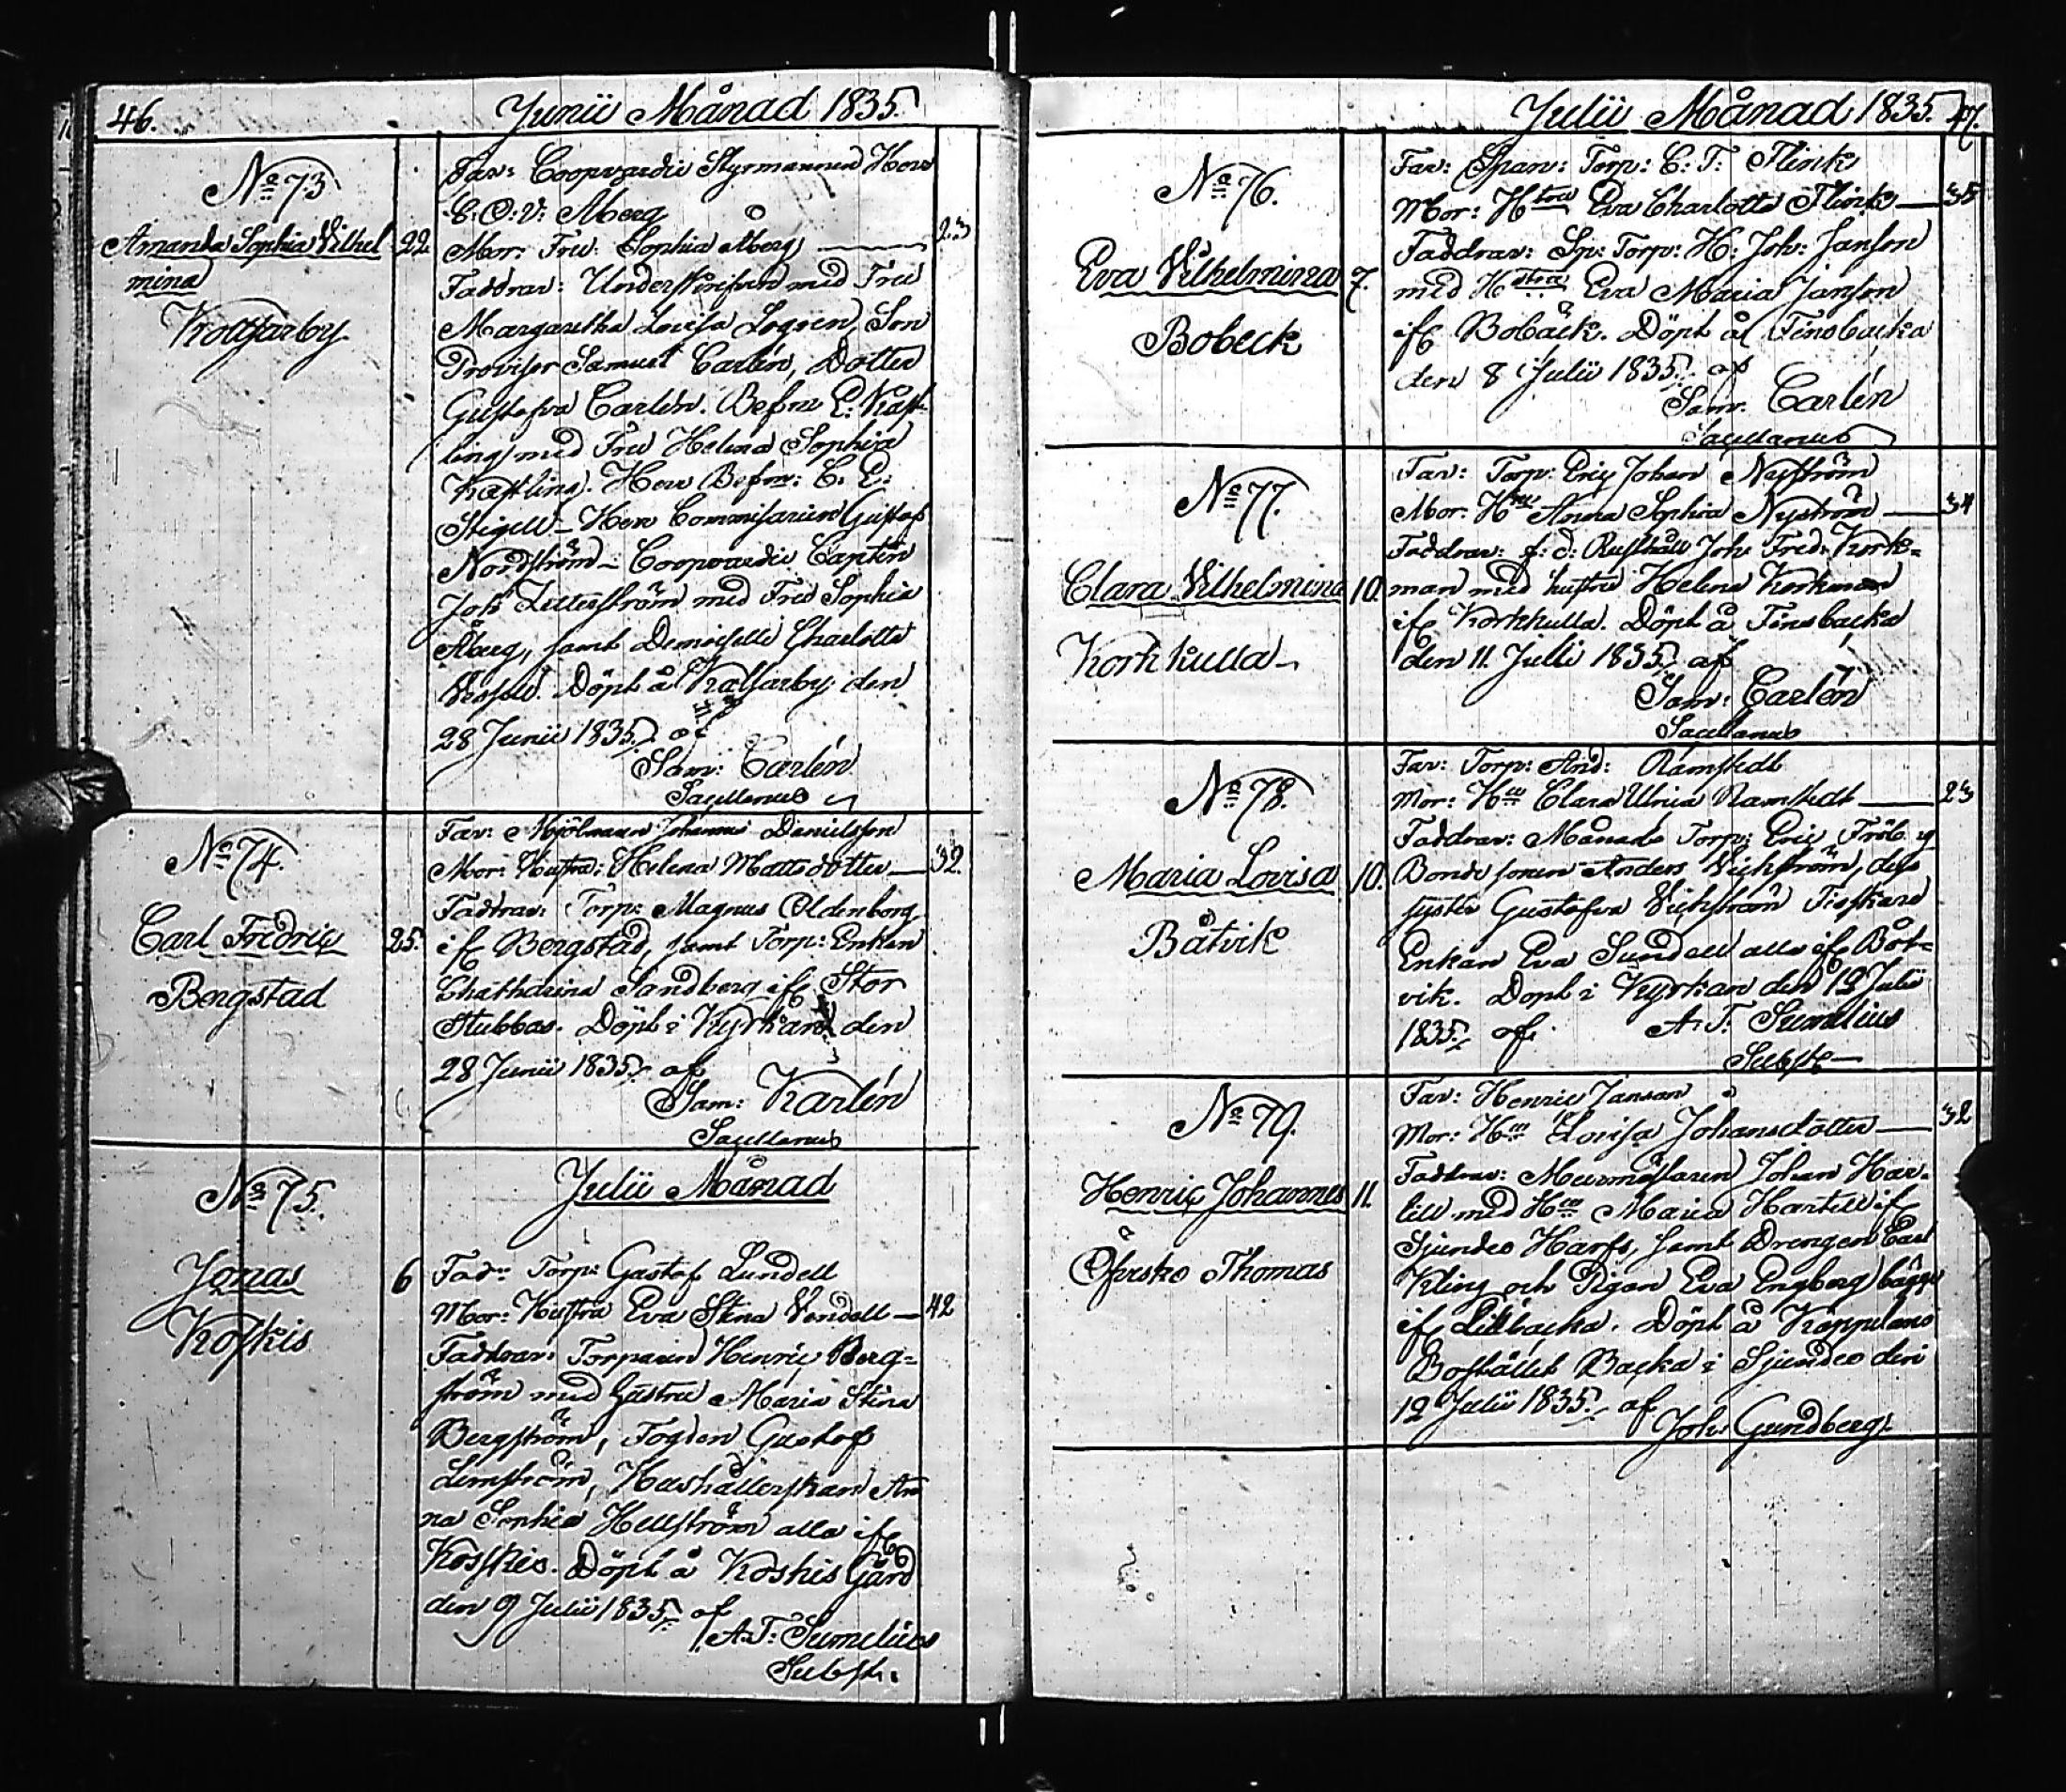 46.
Junii Månad 1835.
No 73
Amanda Sophia Vilhel
mina
22
Far: Coopvardie Styrmannen Herr
C. O: V: Åberg
Mor: Fru Sophia Åberg — 23
Faddrar: Underskrifven med Fru
Margaretha Lovisa Logren, Son
Provisor Samuel Carlén, Dotter
Gustafva Carlén. Befm
ling med Fru Helena Sophia
Herr Befm: C. E:
Stigell – Herr Commisarien Gustaf
Nordström – Coopvardie Capten
Joh: Zitterström med Fru Sophia
Åberg, samt Demoiselle Charlotte
Döpt å den
28 Junii 1835. af
Sam: Carlén
Sacellanus
No 74.
Carl Fredric
25.
Bergstad
Far: Mjölnaren Johannes Danielsson
Mor: Hustru: Helena Mattsdotter — 32.
Faddrar: Torp: Magnus Oldenborg
if Bergstad, samt Torp: Enkan
Chatharina Sandberg if Stor
Stubbas. Döpt i Kyrkan den
28 Junii 1835. af
Sam: Karlén
Sacellanus
No 75.
Julii Månad
Jonas
6
Koskis
Far: Torp: Gustaf Lundell
Mor: Hustru Eva Stina — 42
Faddrar: Torparen Henric Berg-
ström med Hustru Maria Stina
Bergström, Fogden Gustaf
Limström, Hushållerskan An
na Sophia Hellström alla if
Koskis. Döpt å Koskis Gård
den 9 Julii 1835. af
A. F: Sumelius
Subst.
Julii Månad 1835. 47.
No 76.
Eva Vilhelmina
7.
Bobeck
Far: Span: Torp: C: F: Flink
Mor: Hstru Eva Charlotta Flink — 35
Faddrar: Sp: Torp: H: Joh: Janson
med Hstru Eva Maria Janson
if Bobäck. Döpt å Finsbacka
den 8 Julii 1835. af
Sam: Carlén
Sacellanus
No 77.
Clara Vilhelmina
10.
Korkkulla
Far: Torp: Eric Johan Nyström
Mor: Hru Anna Sophia Nyström — 34
Faddrar: f: d: Rusthåll Joh: Fred: Kork-
man med hustru Helena Korkman
if Korkkulla. Döpt å Finsbacka
den 11. Julii 1835. af
Sam: Carlén
Sacellanus
No 78.
Maria Lovisa
10.
Båtvik
Far: Torp: And: Ramstedt
Mor: Hu Clara Ulrica Ramstedt — 23
Faddrar: Månads Torp: Eric
Bonde sonen Anders Vickström, dess
syster Gustafva Vickström Fiskare
Enkan Eva Sundell alla if Båt-
vik. Döpt i Kyrkan den 12 Julii
1835. af A. F: Sumelius
Subst
No 79.
Henric Johannes
11.
Öfversko Thomas
Far: Henric Janson
Mor: Hu Lovisa Johansdotter — 32
Faddrar: Murmästaren Johan Har-
till med Hu Maria Hartell if
Sjundeo Harfs, samt Drengen Carl
Kling och Pigan Eva Engberg bägge
if Lillbacka. Döpt å Kappelans
Bostället Backa i Sjundeo den
12 Julii 1835. af
Joh: Gundberg.